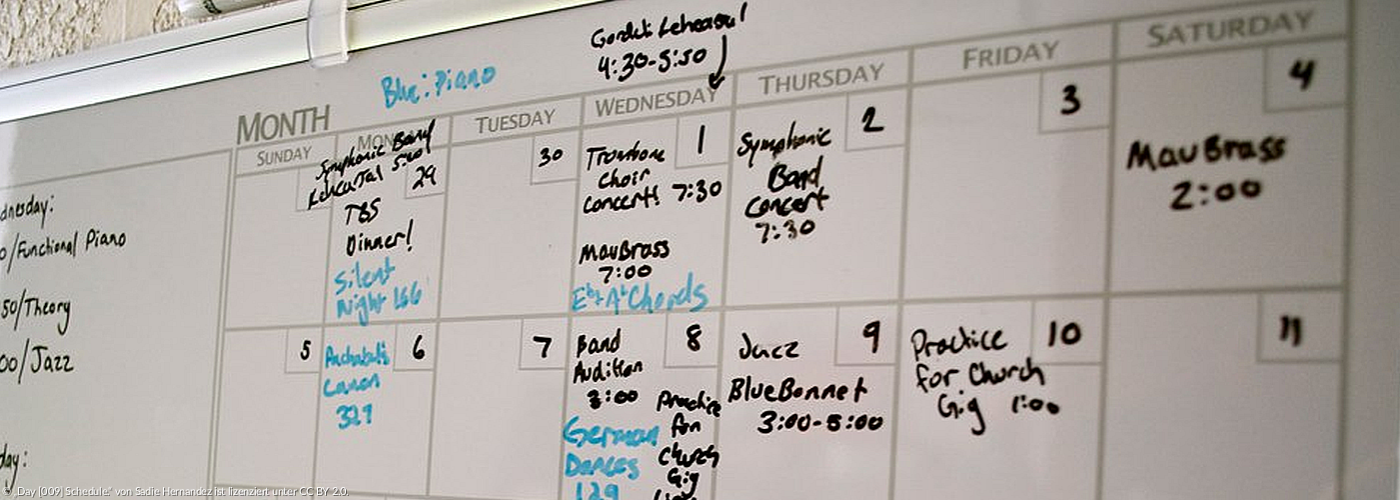 4:30-5:50
Blue: Piano
MONTH
SUNDAY
TUESDAY
WEDNESDAY
THURSDAY
FRIDAY
SATURDAY
Symphonic Band
29
TBS
Dinner!
Silent
Night 166
30
1
Trombone
choir
concert! 7:30
MavBrass
7:00
Eb+Ab Chords
2
Symphonic
Band
concert
7:30
3
4
MavBrass
2:00
/Functional Piano
50/Theory
00/Jazz
5
6
Canon
321
7
8
Band
Audition
3:00
German
Dances
129
Practice
for
Church
Gig
9
Jazz
BlueBonnet
3:00-5:00
10
Practice
for Church
Gig 1:00
11
Day [009] Schedule." von Sadie Hernandez ist lizenziert unter CC BY 2.0.